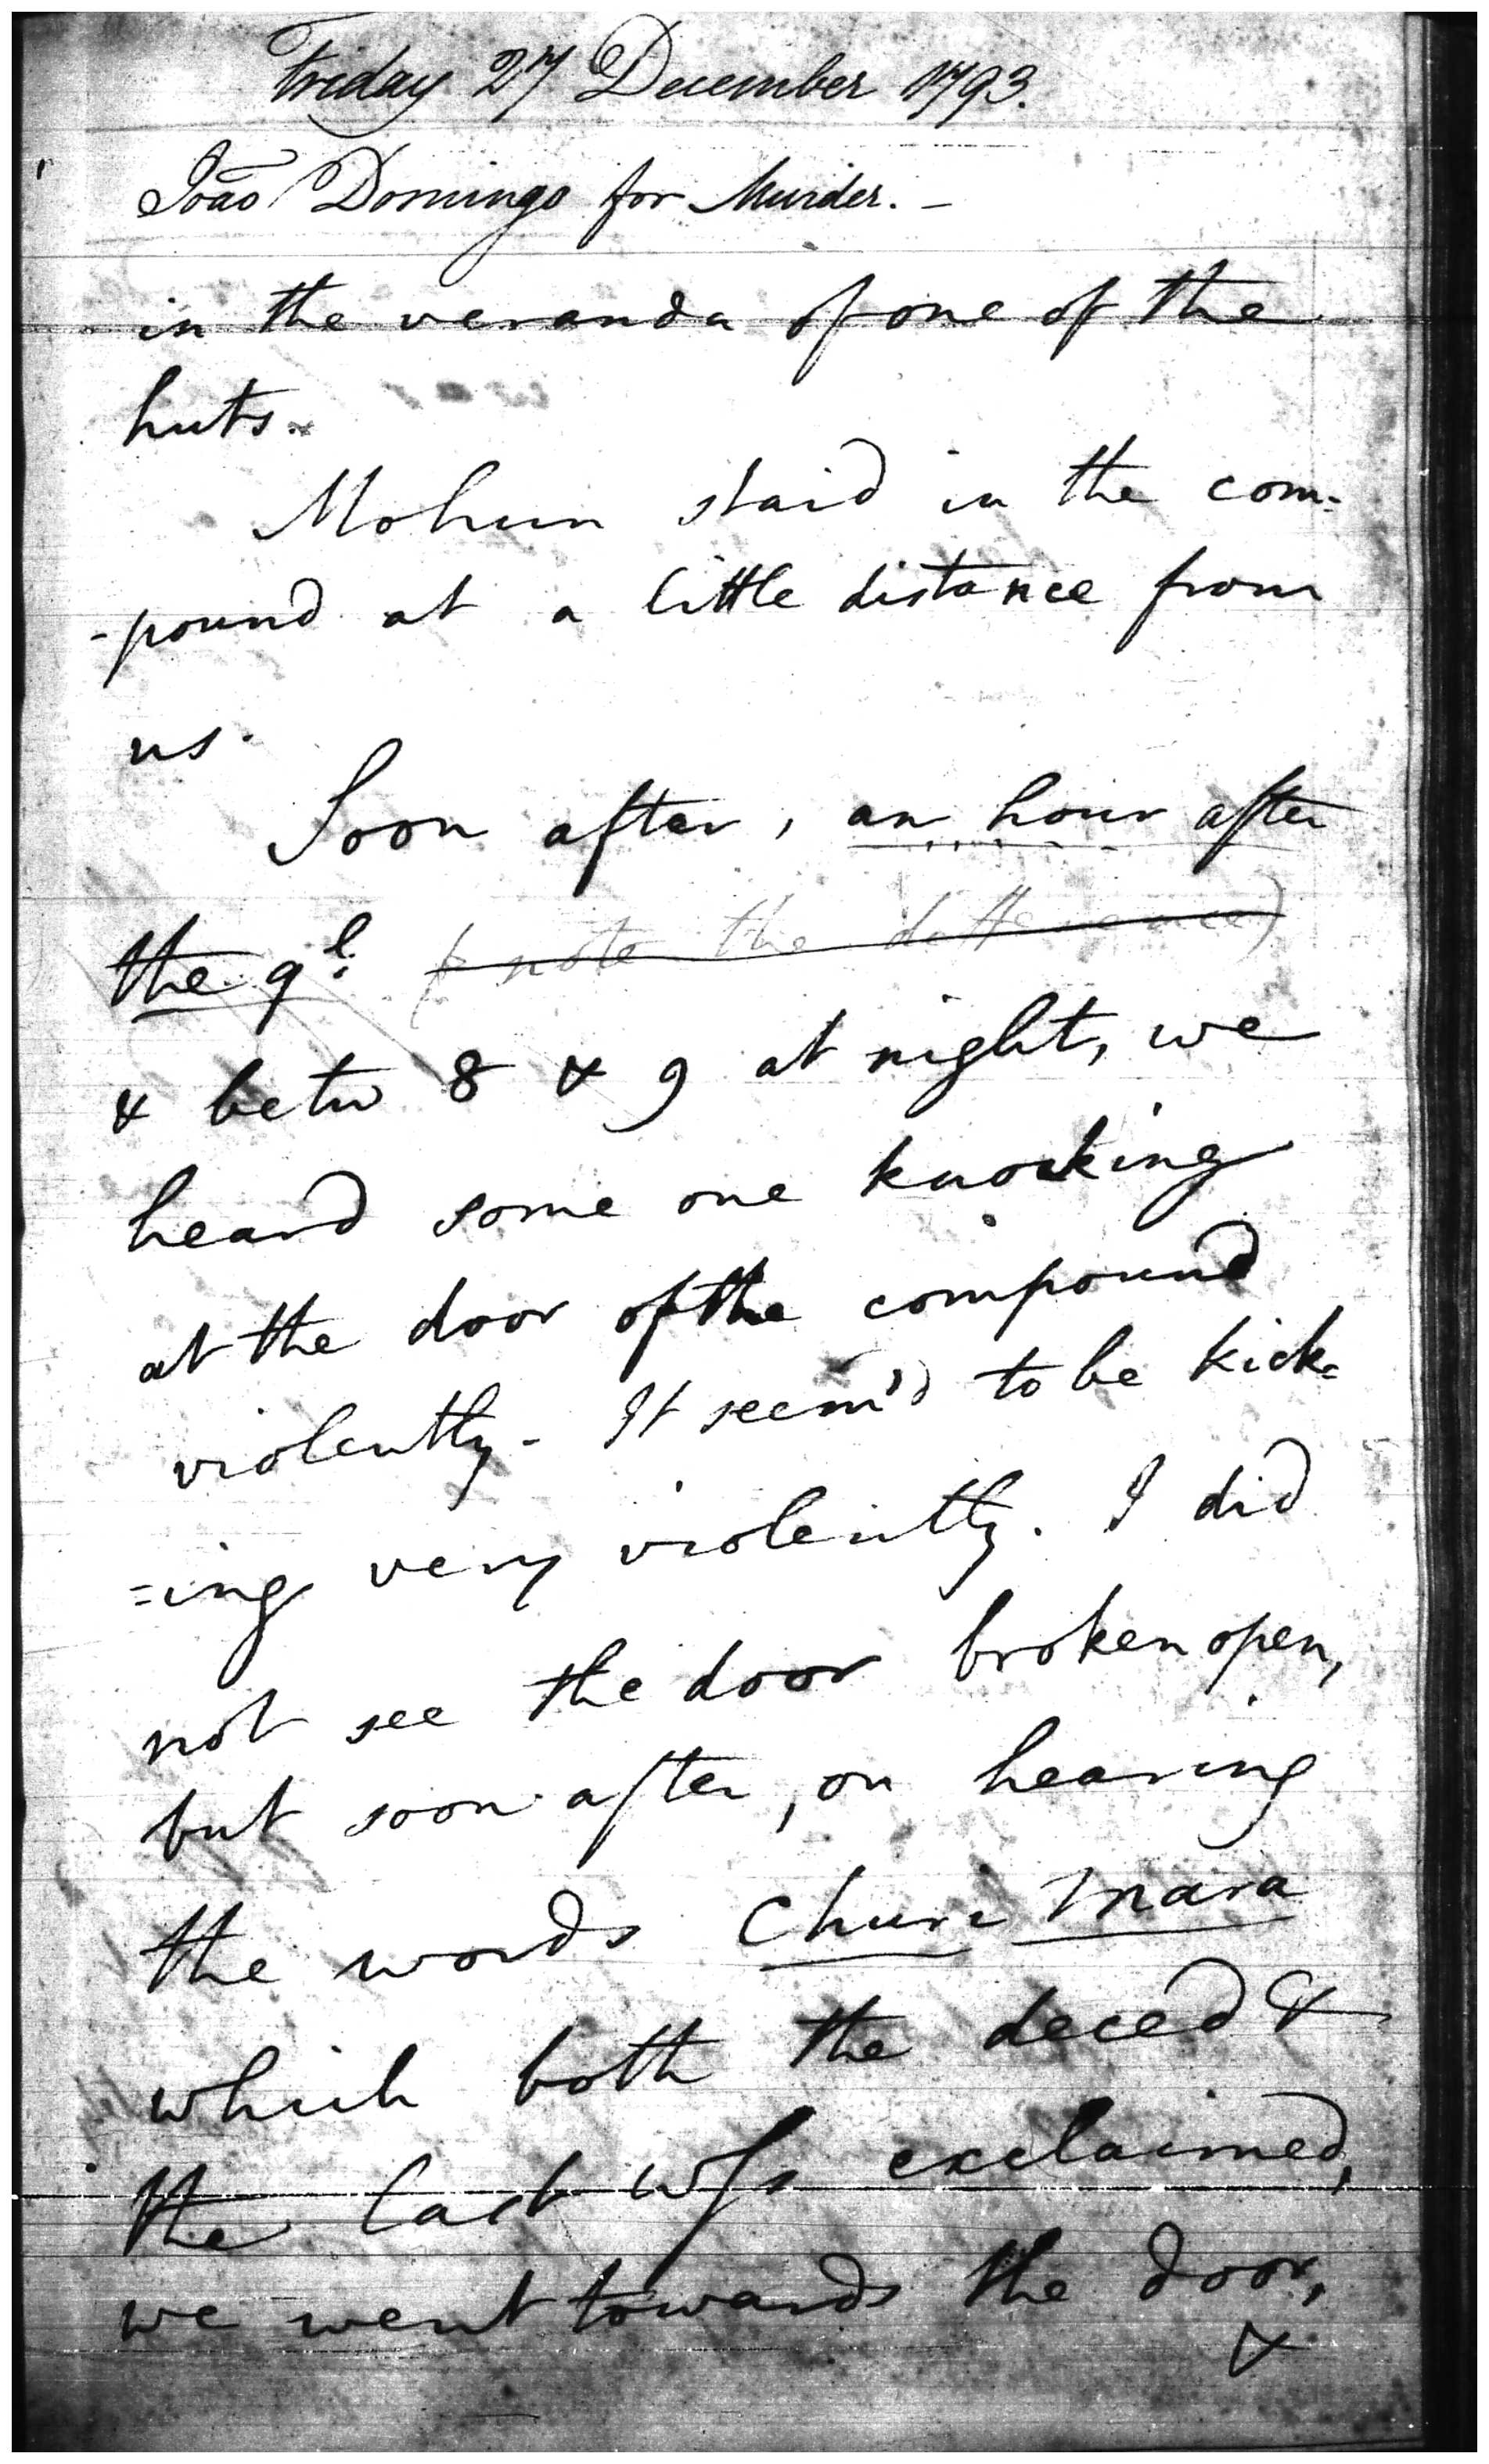 Friday 27 December 1793.
João Domingo for Murder. –
in the veranda of one of the
huts.
Mohun staid in the com-
-pound at a little distance from
us.
Soon after, an hour after
the ql. (& note the difference)
& betw 8 & 9 at night, we
heard some one knocking
at the door of the compound
violently - It seem'd to be kick=
=ing very violently. I did
not see the door broken open,
but soon after, on hearing
the words Churi mara
which both the deced &
the last wss exclaimed,
we went towards the door,
&